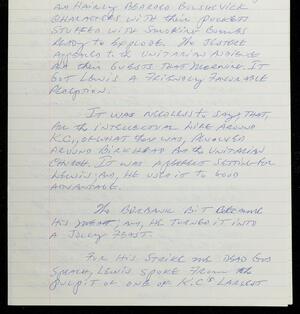 AN HAIRLY BEARDED BOLSHEVICK
CHARACTERS WITH their POCKETS
STUFFED WITH SMOKING BOMBS
READY to EXPLODE. The JESTURE
APPEALED to the UNITARIAN AUDIENCE
AND their GUESTS THAT MORNING. It
GOT LEWIS A FRIENDLY FAVORABLE
RECEPTION.
IT WAS NEEDLESS to SAY THAT,
the INTELLECTUAL LIFE AROUND
K.C., OR WHAT the WAS, REVOLVED
AROUND BIRKHEAD AND the UNITARIAN
CHURCH. IT WAS A PERFECT SETTING FOR
LEWIS; AND, HE USED IT to GOOD
ADVANTAGE.
The BURBANK BIT BECAME
HIS MEAT; AND, HE TURNED IT INTO
A JOLLY FEAST.
FOR HIS STRIKE ME DEAD GOD
SPEACH, LEWIS SPOKE FROM the
PULPIT OF ONE OF K.C'S LARGEST